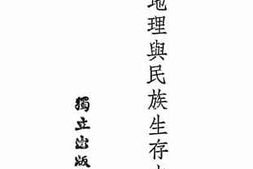 地理與民族生存
獨立出版